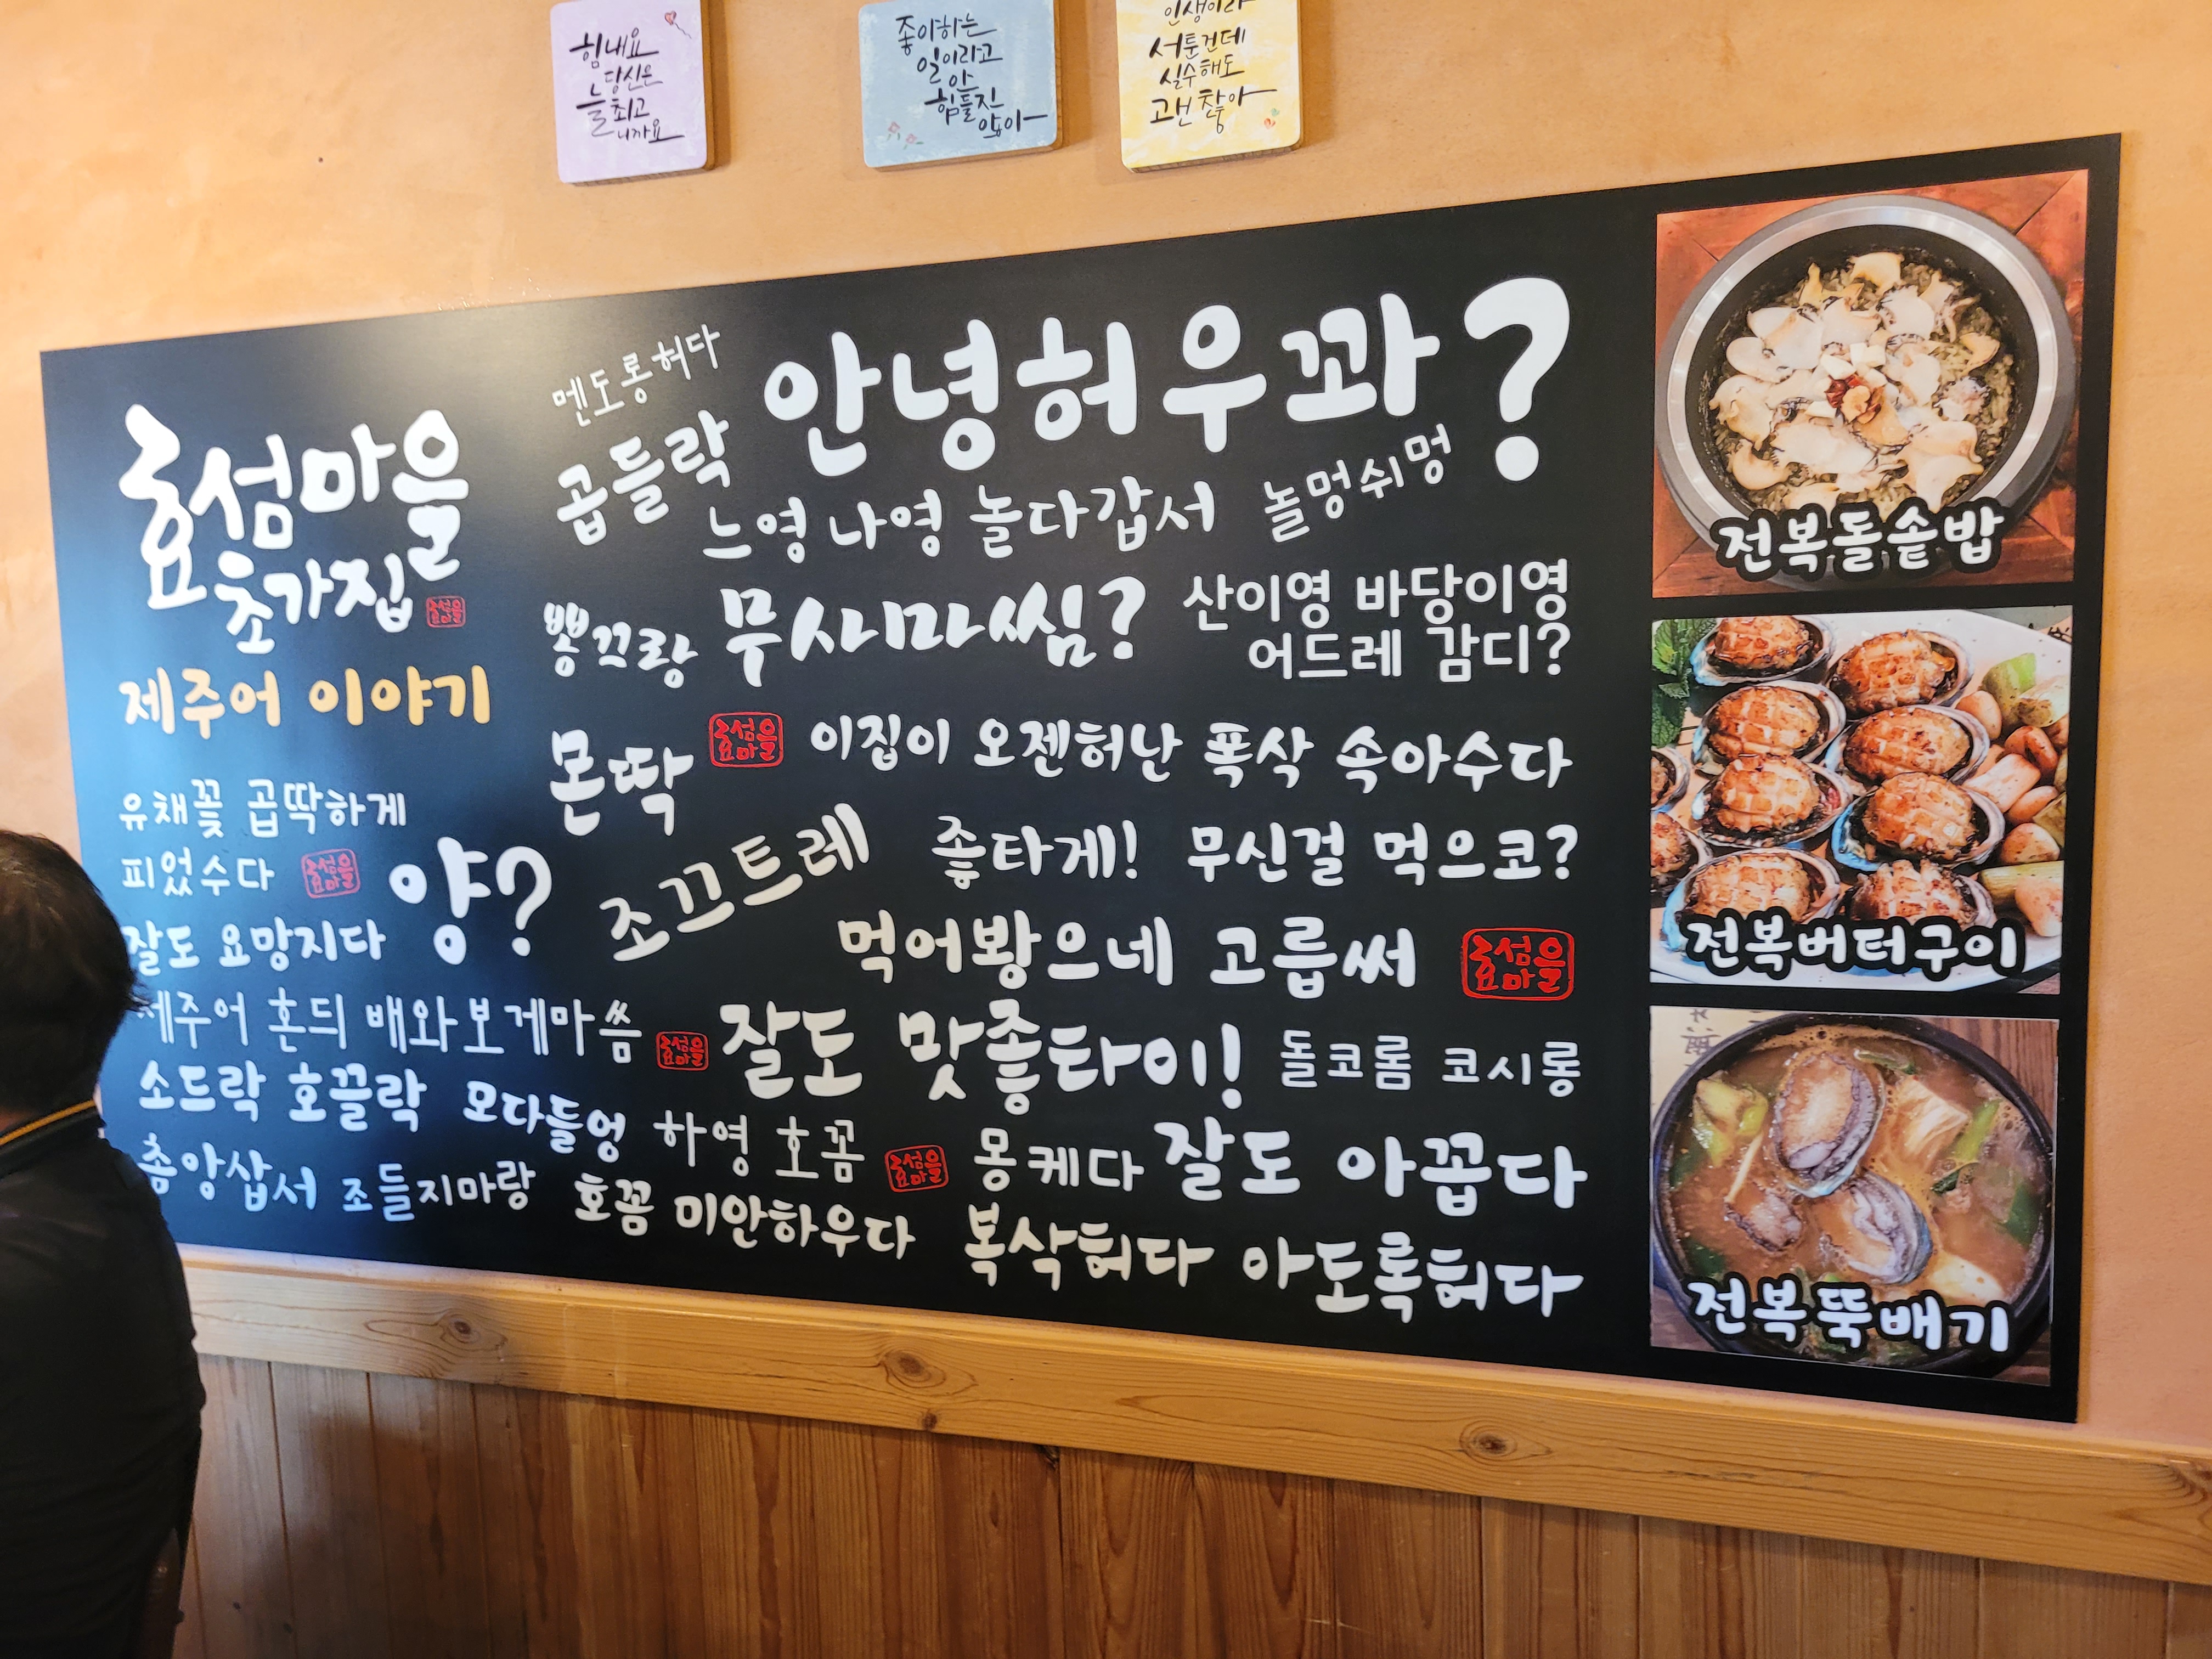 힘내요
당신은
늘 최고
니까요
좋아하는
일이라고
안
힘들진
않아
인생이라
서툰건데
실수해도
괜찮아
효섬마을
초가집
효섬마을
제주어 이야기
유채꽃 곱딱하게
피었수다
효섬마을
양?
잘도 요망지다
제주어 혼듸 배와보게마씀
효섬마을
소드락 호끌락
모다들엉
하영 호꼼
효섬마을
촘앙삽서
조들지마랑
호꼼 미안하우다
멘도롱허다
안녕허우꽈?
곱들락
느영 나영 놀다갑서
놀멍쉬멍
뽕끄랑
무사마씸?
산이영 바당이영
어드레 감디?
몬딱
효섬마을
이집이 오젠허난 폭삭 속아수다
조끄트레
좋타게! 무신걸 먹으코?
먹어봥으네 고릅써
효섬마을
잘도 맛좋타이!
돌코롬 코시롱
몽케다
잘도 아꼽다
복삭허다 아도록허다
전복돌솥밥
전복버터구이
전복뚝배기